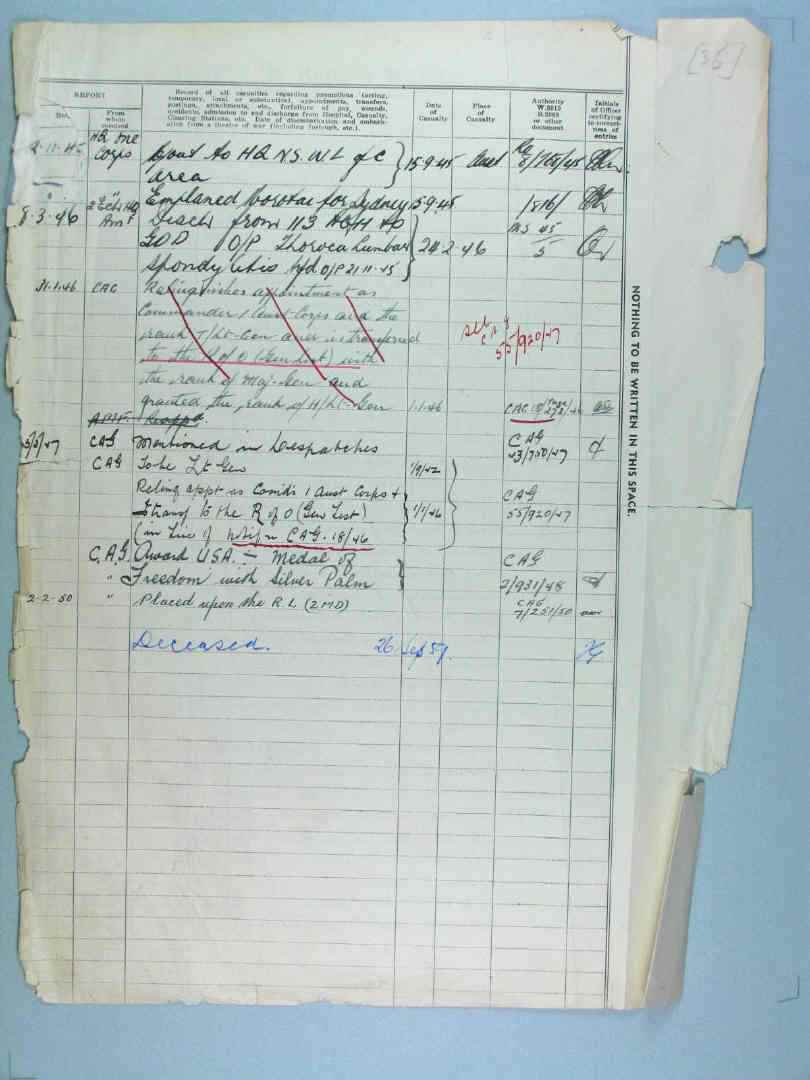 [35]
REPORT
Date
From whom received
Record of all casualties regarding promotions (acting, temporary, local or substantive), appointments, transfers, postings, attachments, etc., forfeiture of pay, wounds, accidents, admission to and discharge from Hospital, Casualty, Clearing Stations, etc. Date of disembarkation and embarkation from a theatre of war (including furlough, etc.).
Date of Casualty
Place of Casualty
Authority W.3010 B.2069 or other document
Initials of Officer certifying to correctness of entries
2-11-45 HQ One Corps to HQ N.S.W L of C 15.9.45 Aust
area
" Emplaned Morotai for Sydney 15.9.45 1816/
8.3.46 2 Ech HQ Disch from 113 AGH to
GDD O/P Thoraco Lumbar 20 2 46 45/5
Spondylitis O/P 21-11-45
31.1.46 CAG Relinquishes appointment as
Commander 1 Aust Corps and the
rank T/Lt-Gen and is transferred
to the R of O (Gen List) with
the rank of Maj-Gen and
granted the rank of H/Lt-Gen 1.1.46
55/920/47
5/5/47 CAG Mentioned in Despatches CAG 43/750/47
CAG To be Lt Gen 1/9/42
Relinq appt as Comdr 1 Aust Corps + CAG
transf to the R of O (Gen List) 1/1/46 55/920/47
(in lieu of notif in CAG. 18/46
C.A.G. Award USA. - Medal of CAG
" Freedom with Silver Palm 2/931/48
2-2-50 " Placed upon the R.L. (2MD) CAG 7/251/50
Deceased. 26 Sep 59.
NOTHING TO BE WRITTEN IN THIS SPACE.